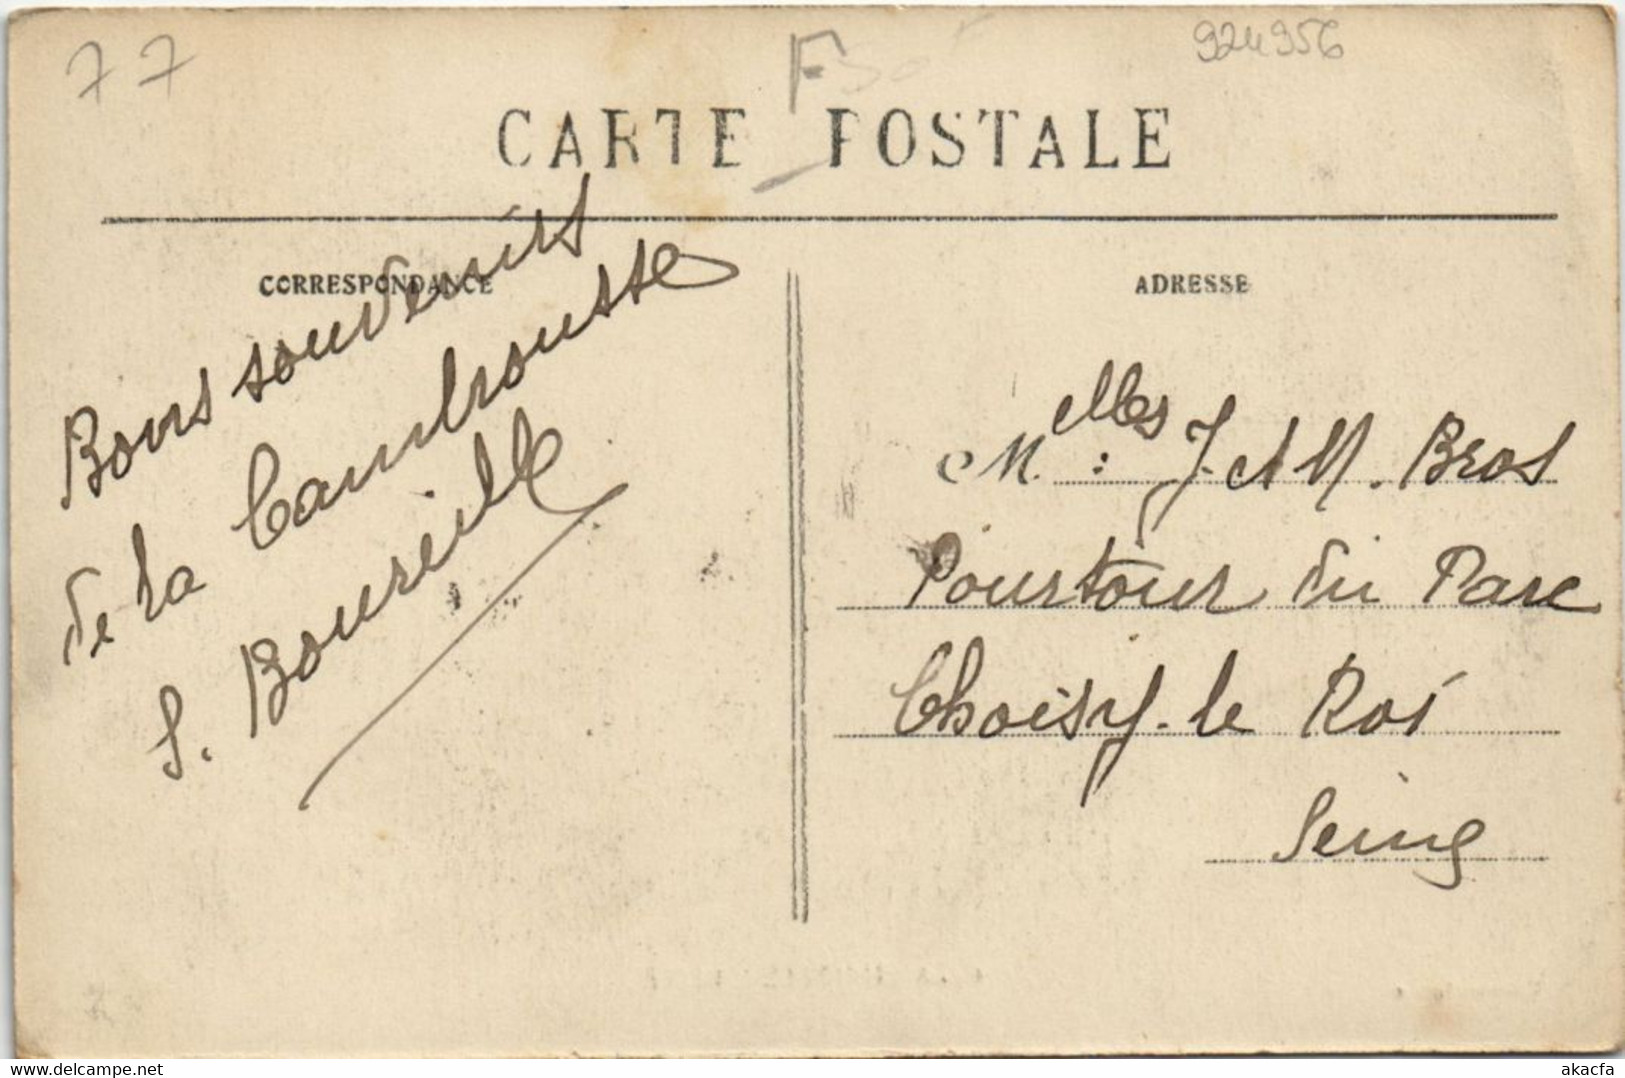 77
F
924956
CARTE POSTALE
CORRESPONDANCE
ADRESSE
Bons souvenirs
de la Cambrousse
S. Boureille
Melles : J. et M. Bros
Pourtour du Parc
Choisy-le Roi
Seine
akacfa